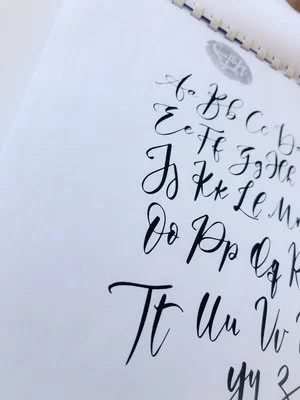 Aa Bb Cc D
Ee Ff Gg Hh
Jj Kk Ll M
Oo Pp Qq R
Tt Uu Vv
Yy Z